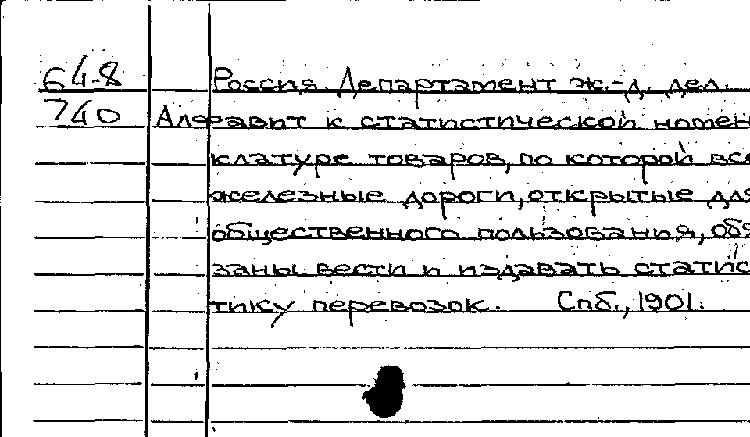 648 Россия. Департамент ж.-д. дел.
740 Алфавит к статистической номен
клатуре товаров, по которой все
железные дороги, открытые для
общественного пользования, обя
заны вести и издавать статис
тику перевозок. Спб., 1901.